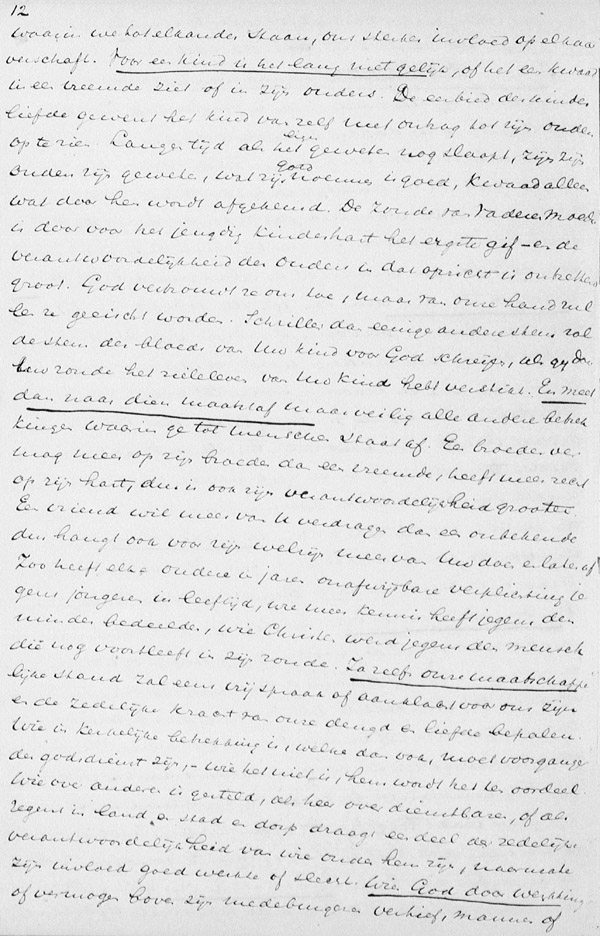 12
waarin we tot elkander staan, ons sterker invloed op elkaar
verschaft. Voor een kind is het lang niet gelijk, of het een kwaad
in een vreemde ziet of in zijn ouders. De eerbied der kinder
liefde gewent het kind van zelf met ontzag tot zijn ouders
op te zien. Langen tijd als het eigen geweten nog slaapt, zijn zijn
ouders zijn geweten, wat zij goed noemen is goed, kwaad alleen
wat door hen wordt afgekeurd. De zonde van Vader en Moeder
is daar voor het jeugdig kinderhart het ergste gif – en de
verantwoordelijkheid der Ouders in dat opzicht is ontzettend
groot. God vertrouwt ze ons toe, maar van onze hand zul
len ze geëischt worden. Schriller dan eenige andere stem zal
de stem des bloeds van Uw kind voor God schreien, als gij door
Uw zonde het zieleleven van Uw kind hebt verstikt. En meet
dan naar dien maatstaf maar veilig alle andere betrek
kingen waarin ge tot menschen staat af. Een broeder ver
mag meer op zijn broeder dan een vreemde, heeft meer recht
op zijn hart, dus is ook zijn verantwoordelijkheid grooter.
Een vriend wil meer van U verdragen dan een onbekende
dus hangt ook voor zijn welzijn meer van Uw doen en laten af
Zoo heeft elke oudere in jaren onafwijsbare verplichting je
gens jongeren in leeftijd, wie meer kennis heeft jegens den
minder bedeelden, wie Christen werd jegens den mensch
die nog voortleeft in zijn zonde. Ja zelfs onze maatschappe
lijke stand zal eens vrijspraak of aanklacht voor ons zijn
en de zedelijke kracht van onze deugd en liefde bepalen.
Wie in kerkelijke betrekking is, welke dan ook, moet voorganger
der godsdienst zijn, – wie het niet is, hem wordt het ten oordeel.
Wie over anderen is gesteld, als heer over dienstbaren, of als
regent in land en stad en dorp draagt een deel der zedelijke
verantwoordelijkheid van wie onder hem zijn, naarmate
zijn invloed goed werkte of slecht. Wien God door werkkring
of vermogen boven zijn medeburgeren verhief, mannen of